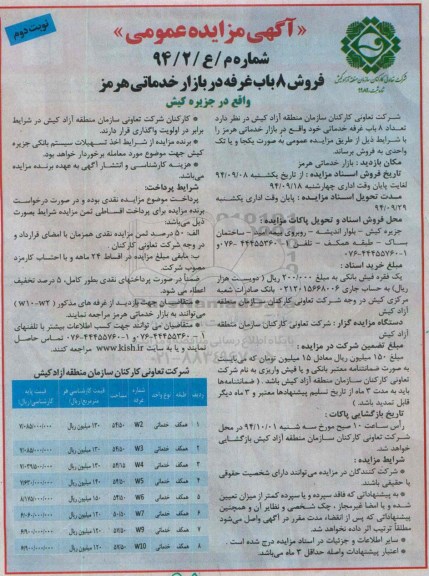 نوبت دوم
«آگهی مزایده عمومی»
شماره م/ع/۹۴/۲
فروش ۸ باب غرفه در بازار خدماتی هرمز
واقع در جزیره کیش
شرکت تعاونی کارکنان سازمان منطقه آزاد کیش
شرکت تعاونی کارکنان سازمان منطقه آزاد کیش در نظر دارد
تعداد ۸ باب غرفه خدماتی خود واقع در بازار خدماتی هرمز را
با شرایط ذیل از طریق مزایده عمومی به صورت یکجا و یا تک
واحدی به فروش برساند.
مکان بازدید: بازار خدماتی هرمز
تاریخ فروش اسناد مزایده: از تاریخ یکشنبه ۹۴/۰۹/۰۸
لغایت پایان وقت اداری چهارشنبه ۹۴/۰۹/۱۸
مدت تحویل اسناد مزایده: پایان وقت اداری یکشنبه
۹۴/۰۹/۲۹
محل فروش اسناد و تحویل پاکات مزایده:
جزیره کیش - بلوار اندیشه - روبروی بیمه امید - ساختمان
بساک - طبقه همکف - تلفن ۱-۰۷۶۴۴۴۵۵۳۶۰ و
۰۷۶-۴۴۴۵۵۷۶۰-۱
مبلغ خرید اسناد:
یک فقره فیش بانکی به مبلغ ۲۰۰/۰۰۰ ریال (دویست هزار
ریال) به حساب جاری ۰۲۱۲۰۱۵۶۸۸۰۰۶ بانک صادرات شعب
مرکزی کیش در وجه شرکت تعاونی کارکنان سازمان منطقه
آزاد کیش
دستگاه مزایده گزار: شرکت تعاونی کارکنان سازمان منطقه
آزاد کیش
مبلغ تضمین شرکت در مزایده:
مبلغ ۱۵۰ میلیون ریال معادل ۱۵ میلیون تومان که می‌بایستی
به صورت ضمانتنامه معتبر بانکی و یا فیش واریزی به نام شرکت
تعاونی کارکنان سازمان منطقه آزاد کیش باشد. (ضمانتنامه‌ها
باید به مدت ۳ ماه از تاریخ تسلیم پیشنهادها معتبر و ۳ ماه دیگر
قابل تمدید باشد)
تاریخ بازگشایی پاکات:
رأس ساعت ۱۰ صبح مورخ سه شنبه ۹۴/۱۰/۰۱ در محل
شرکت تعاونی کارکنان سازمان منطقه آزاد کیش بازگشایی
خواهد شد.
شرایط مزایده:
● شرکت کنندگان در مزایده می‌توانند دارای شخصیت حقوقی
یا حقیقی باشند.
● به پیشنهاداتی که فاقد سپرده و یا سپرده کمتر از میزان تعیین
شده و یا امضا غیرمجاز، چک شخصی و نظایر آن و همچنین
پیشنهاداتی که پس از انقضاء مدت مقرر در آگهی واصل می‌شود
مطلقاً ترتیب اثر داده نخواهد شد.
● سایر اطلاعات و جزئیات در اسناد مزایده درج شده است.
● اعتبار پیشنهادات واصله حداقل ۳ ماه می‌باشد.
● کارکنان شرکت تعاونی سازمان منطقه آزاد کیش در شرایط
برابر در اولویت واگذاری قرار دارند.
● برنده مزایده از شرایط اخذ تسهیلات سیستم بانکی جزیره
کیش جهت موضوع مورد معامله برخوردار خواهد بود.
● هزینه کارشناسی و انتشار آگهی به عهده برنده مزایده
می‌باشد
شرایط پرداخت:
پرداخت موضوع مزایده نقدی بوده و در صورت درخواست
برنده مزایده برای پرداخت اقساطی ثمن مزایده شرایط بصورت
ذیل می‌باشد:
الف: ۵۰ درصد ثمن مزایده نقدی همزمان با امضای قرارداد و
در وجه شرکت تعاونی کارکنان
ب: مابقی مبلغ مزایده در اقساط ۲۴ ماهه و با احتساب کارمزد
مصوب شرکت.
ضمناً در صورت پرداختهای نقدی بطور کامل، ۵ درصد تخفیف
اعطاء می‌شود.
● متقاضیان جهت بازدید از غرفه های مذکور (W2-W10)
می‌توانند به بازار خدماتی هرمز مراجعه نمایند.
● متقاضیان می توانند جهت کسب اطلاعات بیشتر با تلفنهای
۰۷۶-۴۴۴۵۵۳۶۰-۱ و ۰۷۶-۴۴۴۵۵۷۶۰-۱ تماس حاصل
نمایند و یا به سایت www.kish.ir مراجعه کنند.
شرکت تعاونی کارکنان سازمان منطقه آزاد کیش
ردیف طبقه نوع واحد شماره غرفه مساحت قیمت کارشناسی هر مترمربع (ریال) قیمت پایه کارشناسی (ریال)
۱ همکف خدماتی W2 ۵۴/۵۰ ۱۳۰ میلیون ریال ۷/۰۸۵/۰۰۰/۰۰۰
۲ همکف خدماتی W3 ۵۴/۵۰ ۱۳۰ میلیون ریال ۷/۰۸۵/۰۰۰/۰۰۰
۳ همکف خدماتی W4
۴ همکف خدماتی W5
۵ همکف خدماتی W6
۶ همکف خدماتی W7
۷ همکف خدماتی W9
۸ همکف خدماتی W10